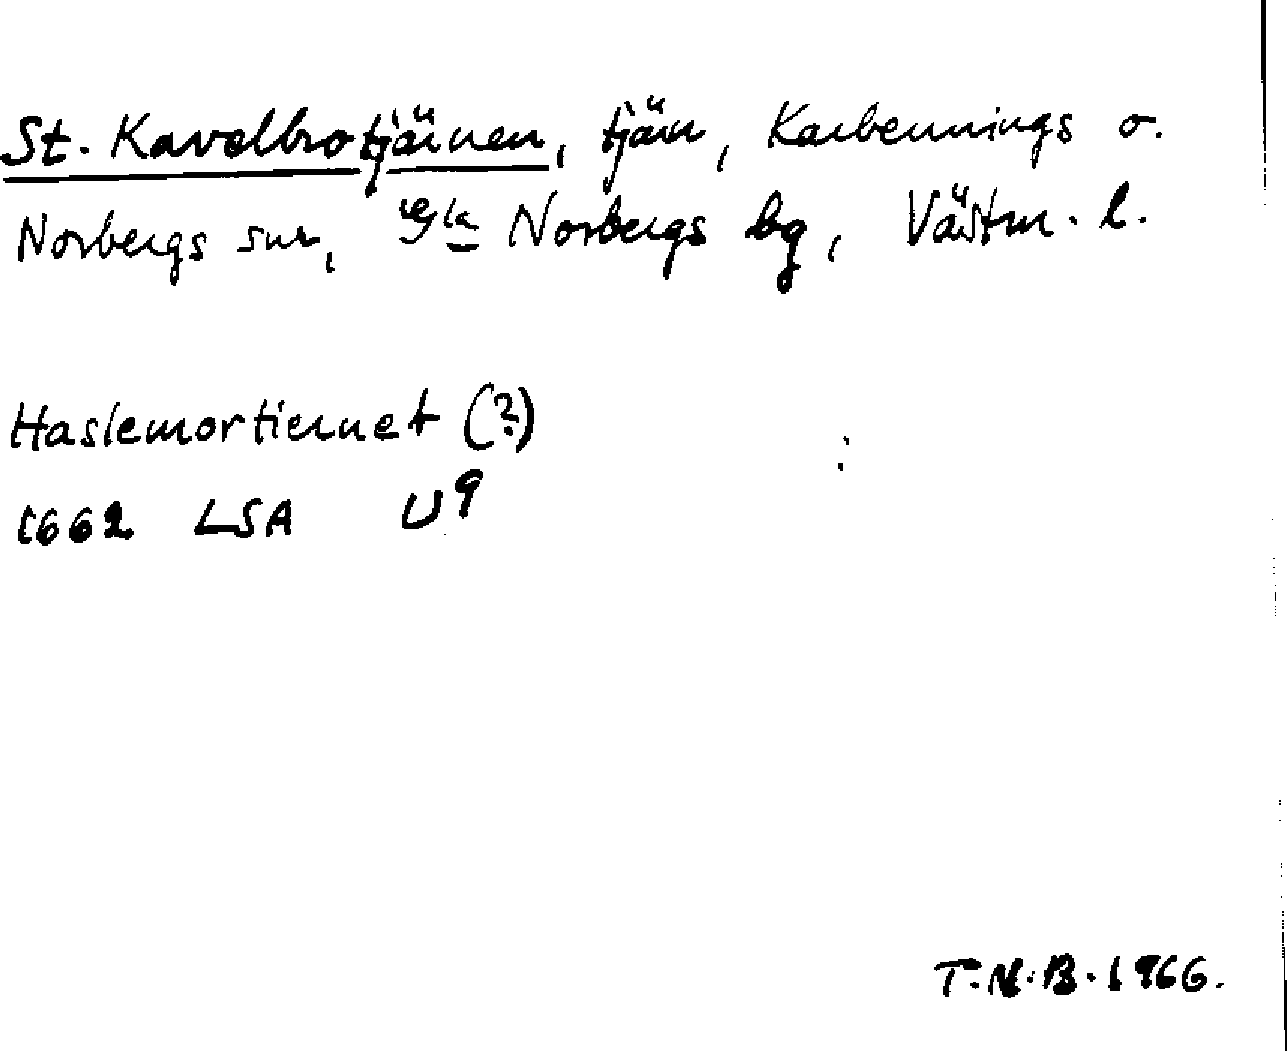 St. Kavelbrotjärnen, tjärn, Karbennings o.
Norbergs snr, Norbergs bg, Västm. l.
Haslemortiernet (?)
1662 LSA U9
T.N.B. 1966.